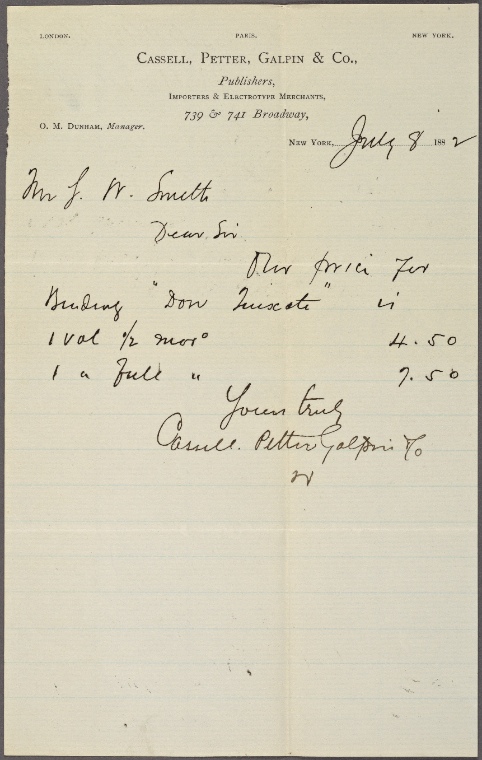 LONDON. PARIS. NEW YORK.
CASSELL, PETTER, GALPIN & CO.,
Publishers,
IMPORTERS & ELECTROTYPE MERCHANTS,
739 & 741 Broadway,
O. M. DUNHAM, Manager.
NEW YORK, July 8 1882
Mr J. W. Smith
Dear Sir
Our price for
Binding "Don Quixote" is
1 Vol 1/2 moro 4.50
1 " full " 7.50
Yours truly
Cassell. Petter Galpin & Co